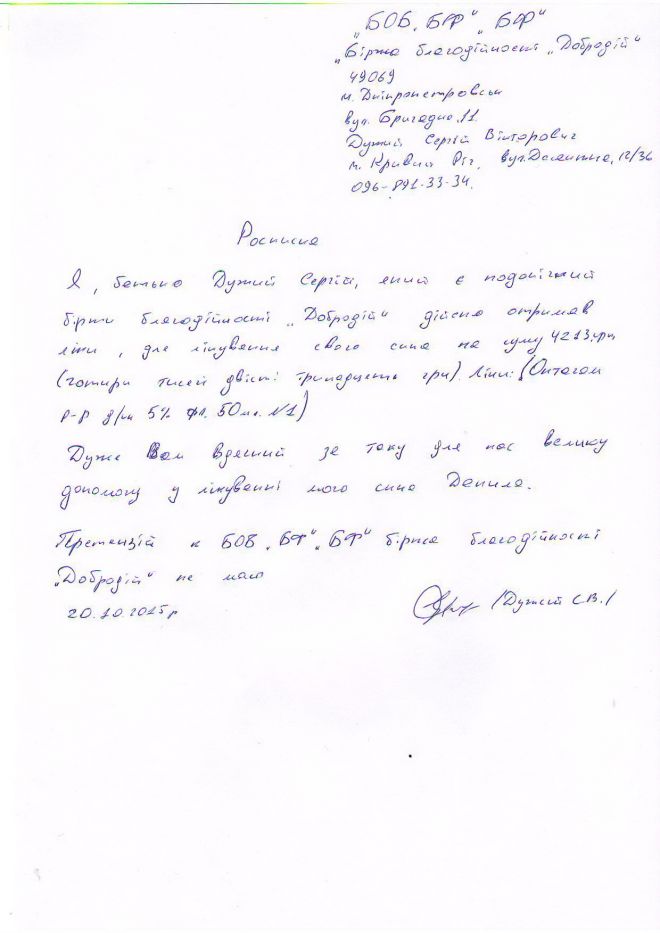 „БОБ, БФ“ „БФ“
„Біржа благодійності „Добродій“
49069
м. Дніпропетровськ
вул. Бригадна, 11
Дужий Сергій Вікторович
м. Кривий Ріг, 12/36
096-891-33-34.
Росписка
Я, батько Дужий Сергій, який є подопічний
біржи благодійності „Добродій“ дійсно отримав
ліки, для лікування свого сина на суму 4213грн
(чотири тисячі двісті тринадцять грн). Ліки: (Октагам
р-р д/ин 5% фл. 50мл. №1)
Дуже Вам вдячний за таку для нас велику
допомогу у лікуванні мого сина Данила.
Претензій к БОБ „БФ“ „БФ“ біржа благодійності
„Добродій“ не маю
20.10.2015р /Дужий С.В./